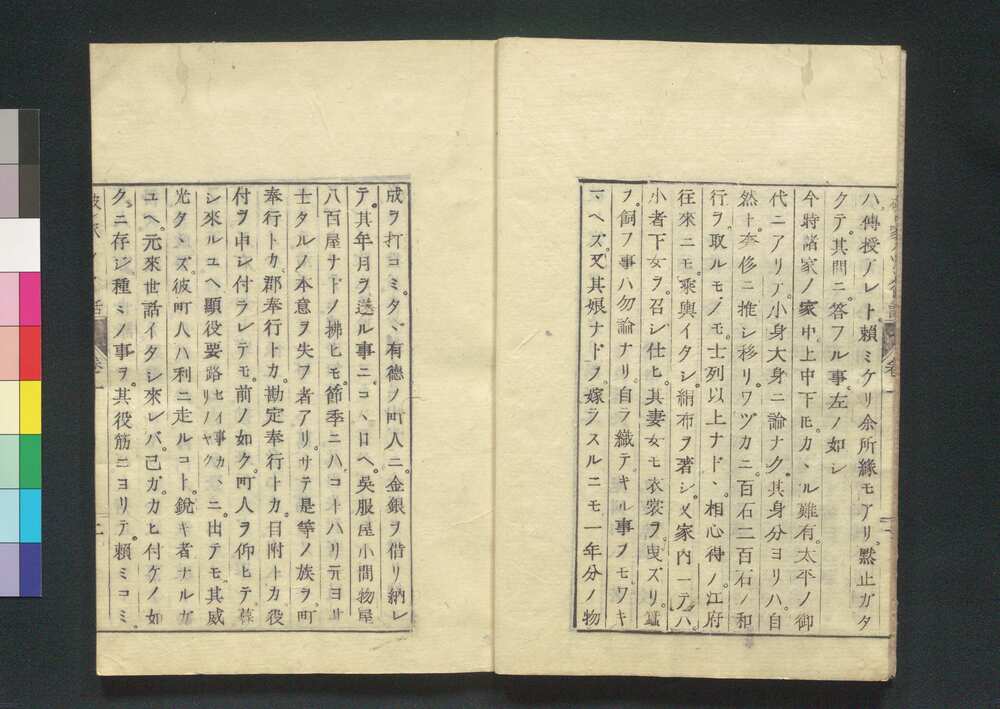 ハ。傳授アレト。賴ミケリ余所緣モアリ。黙止ガタ
クテ。其問ニ。答フル事。左ノ如シ
今時諸家ノ家中。上中下モ。カヽル難有。太平ノ御
代ニアリテ。小身大身ニ論ナク。其身分ヨリハ。自
然ト奢侈ニ推シ移リ。ワヅカニ。百石二百石ノ和
行ヲ。取ルモノモ。士列以上ナド。相心得ノ。江府
往來ニモ。乘輿イタシ。絹布ヲ著シ。又家內ニテハ。
小者下女ヲ。召シ仕ヒ。其妻女モ衣裳ヲ。曳ズリ。蠶
ヲ。飼フ事ハ勿論ナリ。自ラ織テ。キル事ヲモ。ワキ
マヘズ。又其娘ナドヲ。嫁ラスルニモ一年分ノ物
成ヲ打コミ。タヾ有德ノ町人ニ。金銀ヲ借リ納レ
テ。其年月ヲ送ル事ニコヽロヘ。吳服屋小間物屋
八百屋ナドノ拂ヒモ。節季ニハ。コトハリ
士タルノ本意ヲ失フ者アリ。サテ是等ノ族ヲ。町
奉行トカ。郡奉行トカ。勘定奉行トカ。目附トカ。役
付ヲ申シ付ラレテモ。前ノ如ク。町人ヲ仰ヒテ。
シ來ルユヘ。顯役要路ヒイ事カヽニ。出テモ。其威
光タヽズ。彼町人ハ。利ニ走ルコト。銳キ者ナルガ
ユヘ。元來世話イタシ來レバ。己ガ。カヒ付ケノ如
クニ存ジ種ミノ事ヲ。其役筋ニヨリテ。賴ミコミ。
卷一
二